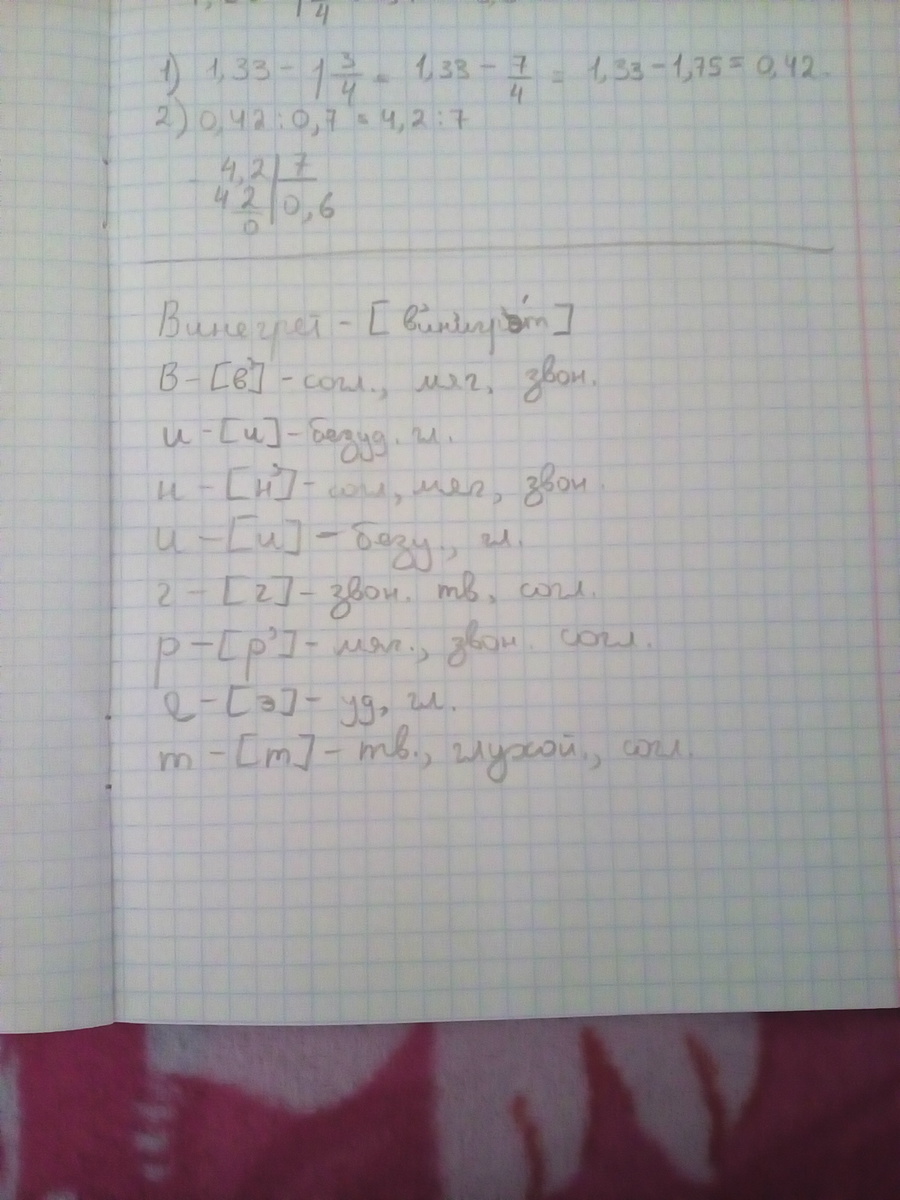 1) 1,33 - 1 3/4 = 1,33 - 7/4 = 1,33 - 1,75 = 0,42.
2) 0,42 : 0,7 = 4,2 : 7
- 4,2 | 7
4 2 | 0,6
0
Винегрет - [в'ин'игр'эт]
В - [в'] - согл., мяг, звон.
и - [и] - безуд. гл.
н - [н'] - согл, мяг, звон.
и - [и] - безу., гл.
г - [г] - звон. тв, согл.
р - [р'] - мяг., звон. согл.
е - [э] - уд, гл.
т - [т] - тв., глухой., согл.